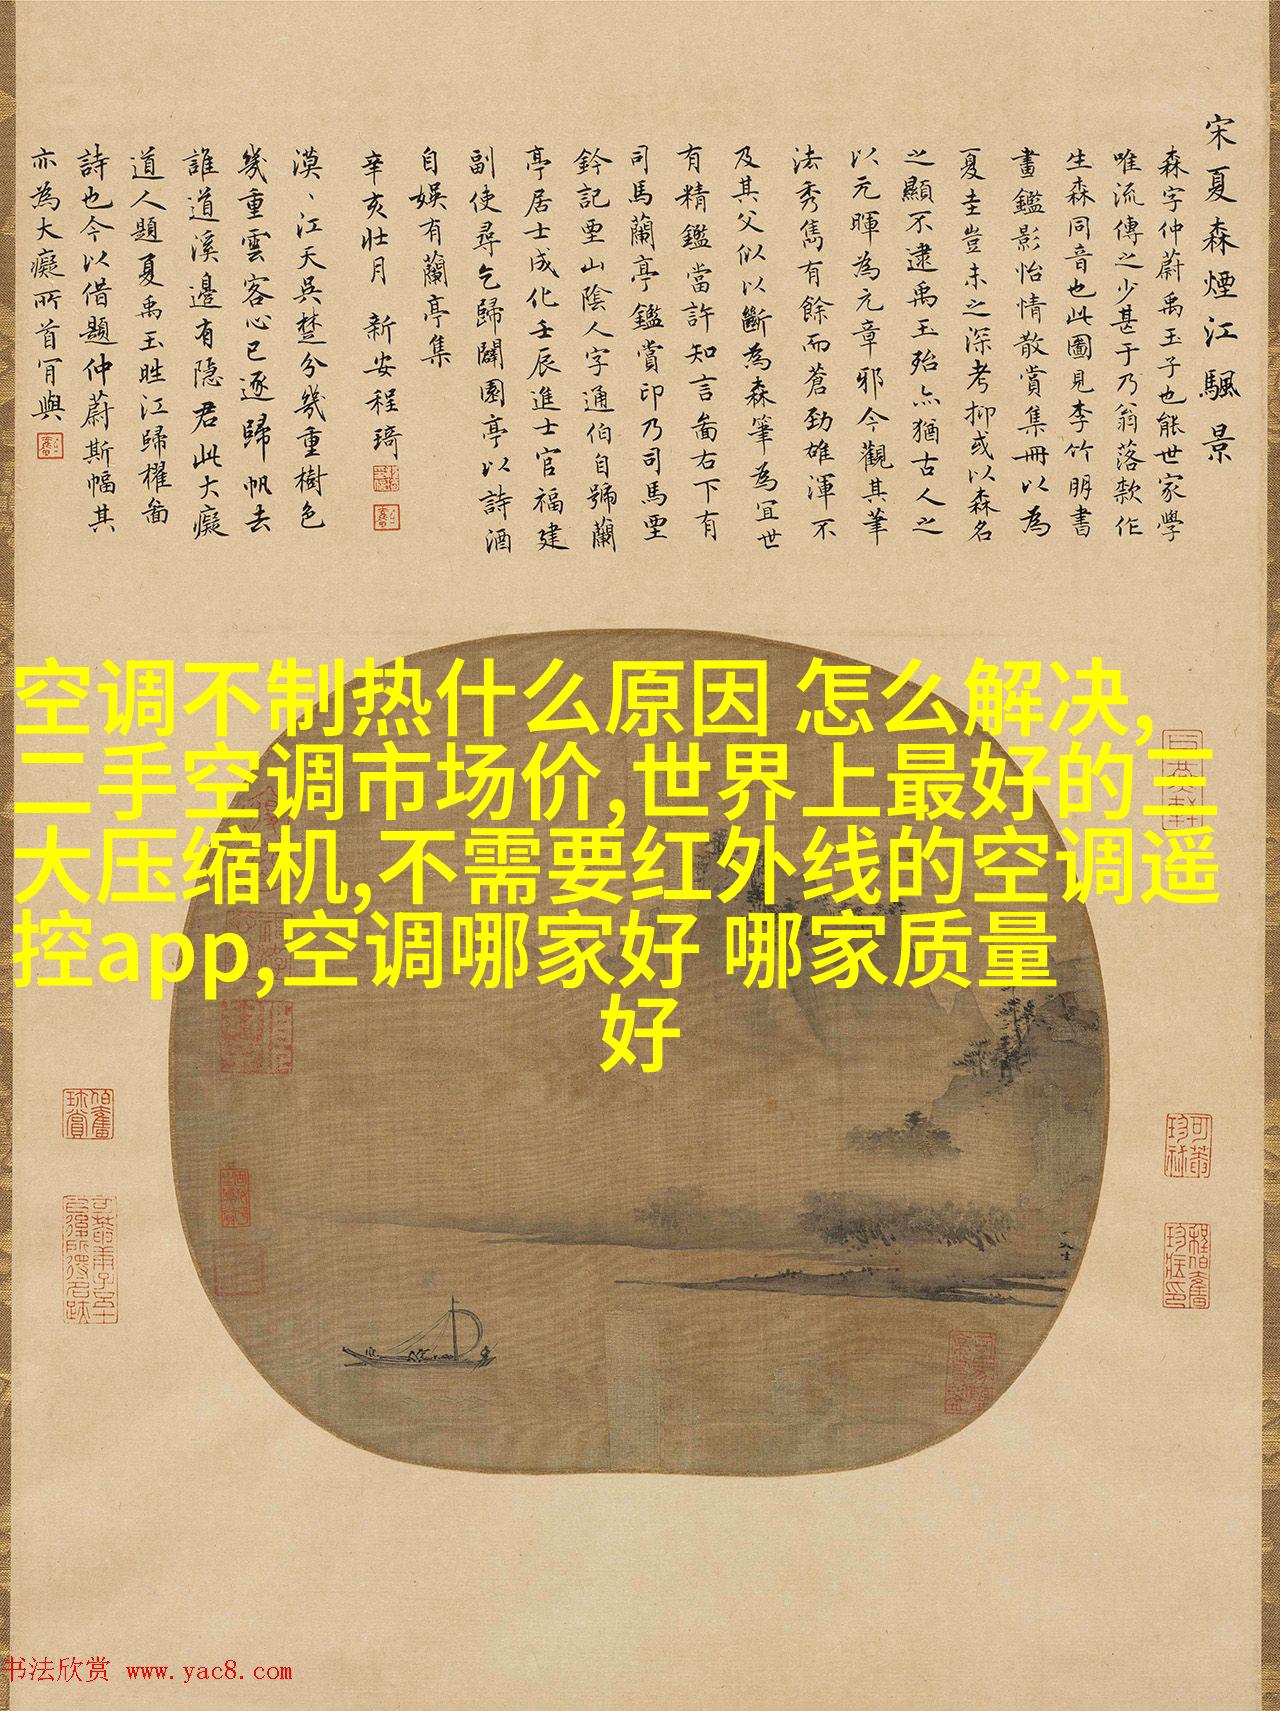 宋夏森煙江颿景
森字仲蔚禹玉子也能世家學
唯流傳之少甚于乃翁落款作
生森同音也此圖見李竹朋書
畫鑑影怡情散賞集冊以為
夏圭豈未之深考抑或以森名
之顯不逮禹玉殆亦猶古人之
以元暉為元章邪今觀其筆
法秀雋有餘而蒼勁雄渾不
及其父似以斷為森筆為宜世
有精鑑當許知言畣右下有
司馬蘭亭鑑賞印乃司馬垔
鈐記垔山陰人字通伯自號蘭
亭居士成化壬辰進士官福建
副使尋乞歸闢園亭以詩酒
自娛有蘭亭集
辛亥壯月 新安程琦
漠丶江天吳楚分幾重樹色
幾重雲客心已逐歸帆去
誰道溪邊有隱君此大癡
道人題夏禹玉晴江歸櫂畣
詩也今以借題仲蔚斯幅其
亦為大癡所首肎與
空调不制热什么原因 怎么解决,
二手空调市场价,世界上最好的三
大压缩机,不需要红外线的空调遥
控app,空调哪家好 哪家质量
好
伯奮
珍賞
书法欣赏 www.yac8.com